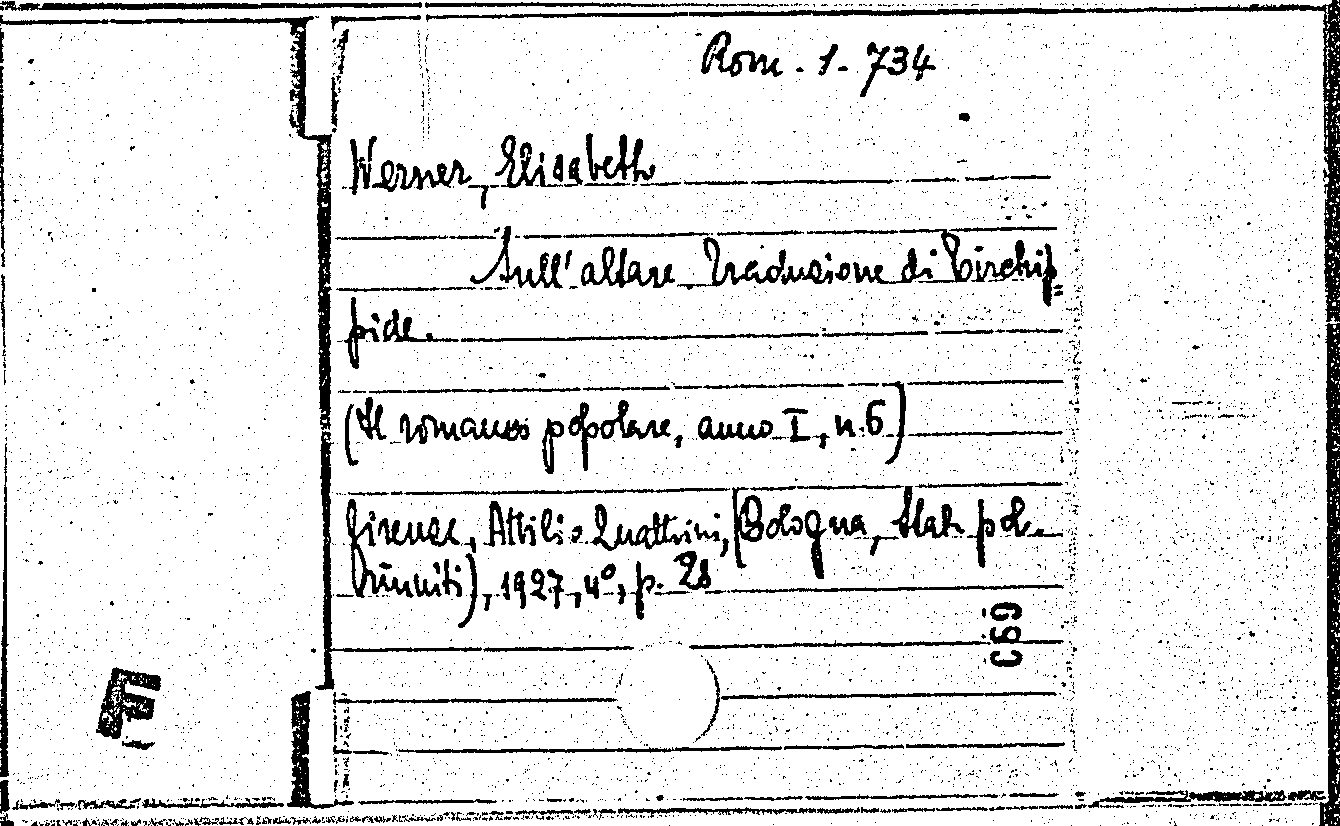 Rom. 1. 734
Werner, Elisabeth
Sull'altare. Traduzione di Circhip=
pide.
(Il romanzo popolare, anno I, n. 6)
Firenze, Attilio Quattrini, (Bologna, Stab. pol.
Riuniti), 1927, 4º, p. 28
C69
F